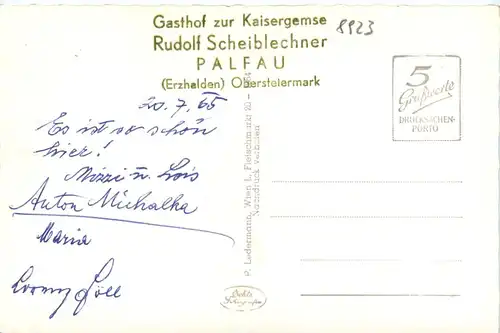 Gasthof zur Kaisergemse
8923
Rudolf Scheiblechner
PALFAU
(Erzhalden) Obersteiermark
5
Grußworte
DRUCKSACHEN-
PORTO
20.7.65
Es ist so schön
hier!
Mizzi u. Lois
Anton Michalka
Maria
Lorenz Göll
P. Ledermann, Wien I, Fleischmarkt 20
Nachdruck verboten
Echte